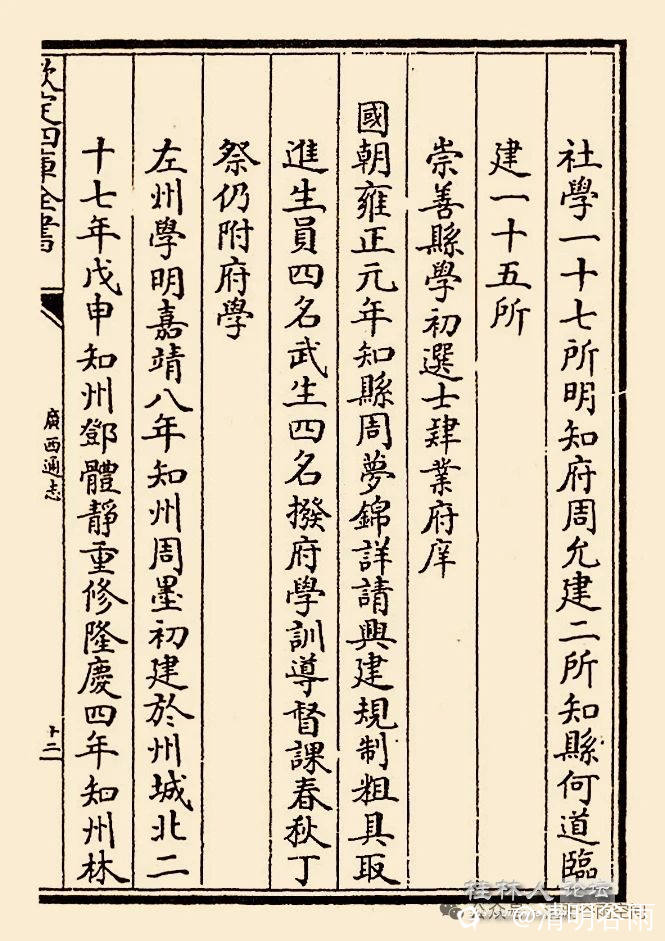 社學一十七所明知府周允建二所知縣何道臨
建一十五所
崇善縣學初選士肄業府庠
國朝雍正元年知縣周夢錦詳請興建規制粗具取
進生員四名武生四名撥府學訓導督課春秋丁
祭仍附府學
左州學明嘉靖八年知州周墨初建於州城北二
十七年戊申知州鄧體靜重修隆慶四年知州林
欽定四庫全書
廣西通志
十二
桂林人论坛
@清明谷雨